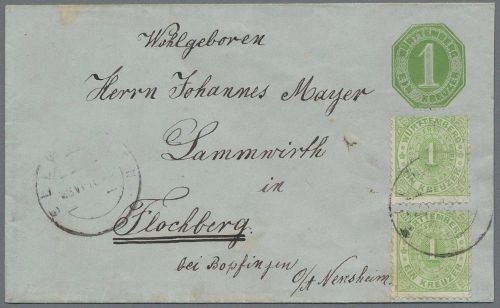 Wohlgeboren
Herrn Johannes Mayer
Lammwirth
in
Flochberg.
bei Bopfingen
O/A Neresheim.
WÜRTTEMBERG
1
EIN KREUZER
WÜRTTEMBERG
1
EIN KREUZER
WÜRTTEMBERG
1
EIN KREUZER